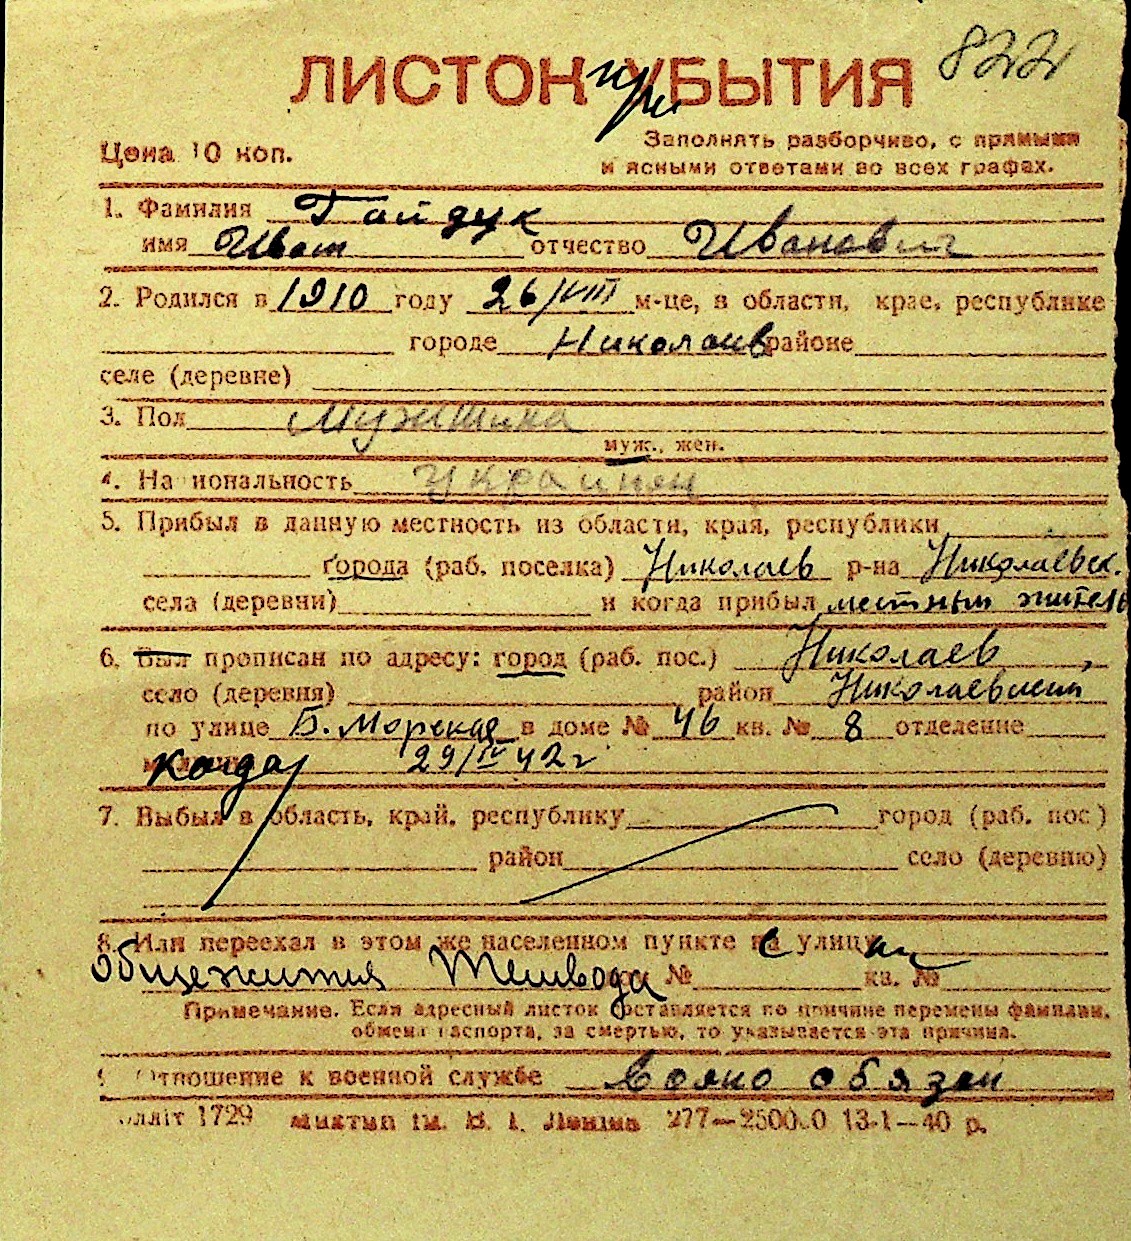 822
ЛИСТОК при УБЫТИЯ
Цена 10 коп.
Заполнять разборчиво, с прямыми
и ясными ответами во всех графах.
1. Фамилия Гайдук
имя Иван отчество Иванович
2. Родился в 1910 году 26/VIII м-це, в области, крае, республике
городе Николаев районе
селе (деревне)
3. Пол Мужчина
муж., жен.
4. Национальность Украинец
5. Прибыл в данную местность из области, края, республики
города (раб. поселка) Николаев р-на Николаевск.
села (деревни) и когда прибыл местный житель
6. Был прописан по адресу: город (раб. пос.) Николаев,
село (деревня) район Николаевский
по улице Б. Морская в доме № 46 кв. № 8 отделение
когда 29/IV 42 г
7. Выбыл в область, край, республику город (раб. пос.)
район село (деревню)
8. Или переехал в этом же населенном пункте с улицы
общежития № кв. №
Примечание. Если адресный листок составляется по причине перемены фамилии,
обмена паспорта, за смертью, то указывается эта причина.
9. Отношение к военной службе воено обязан
1729 им. В. І. Леніна 277—25000 13-1—40 р.